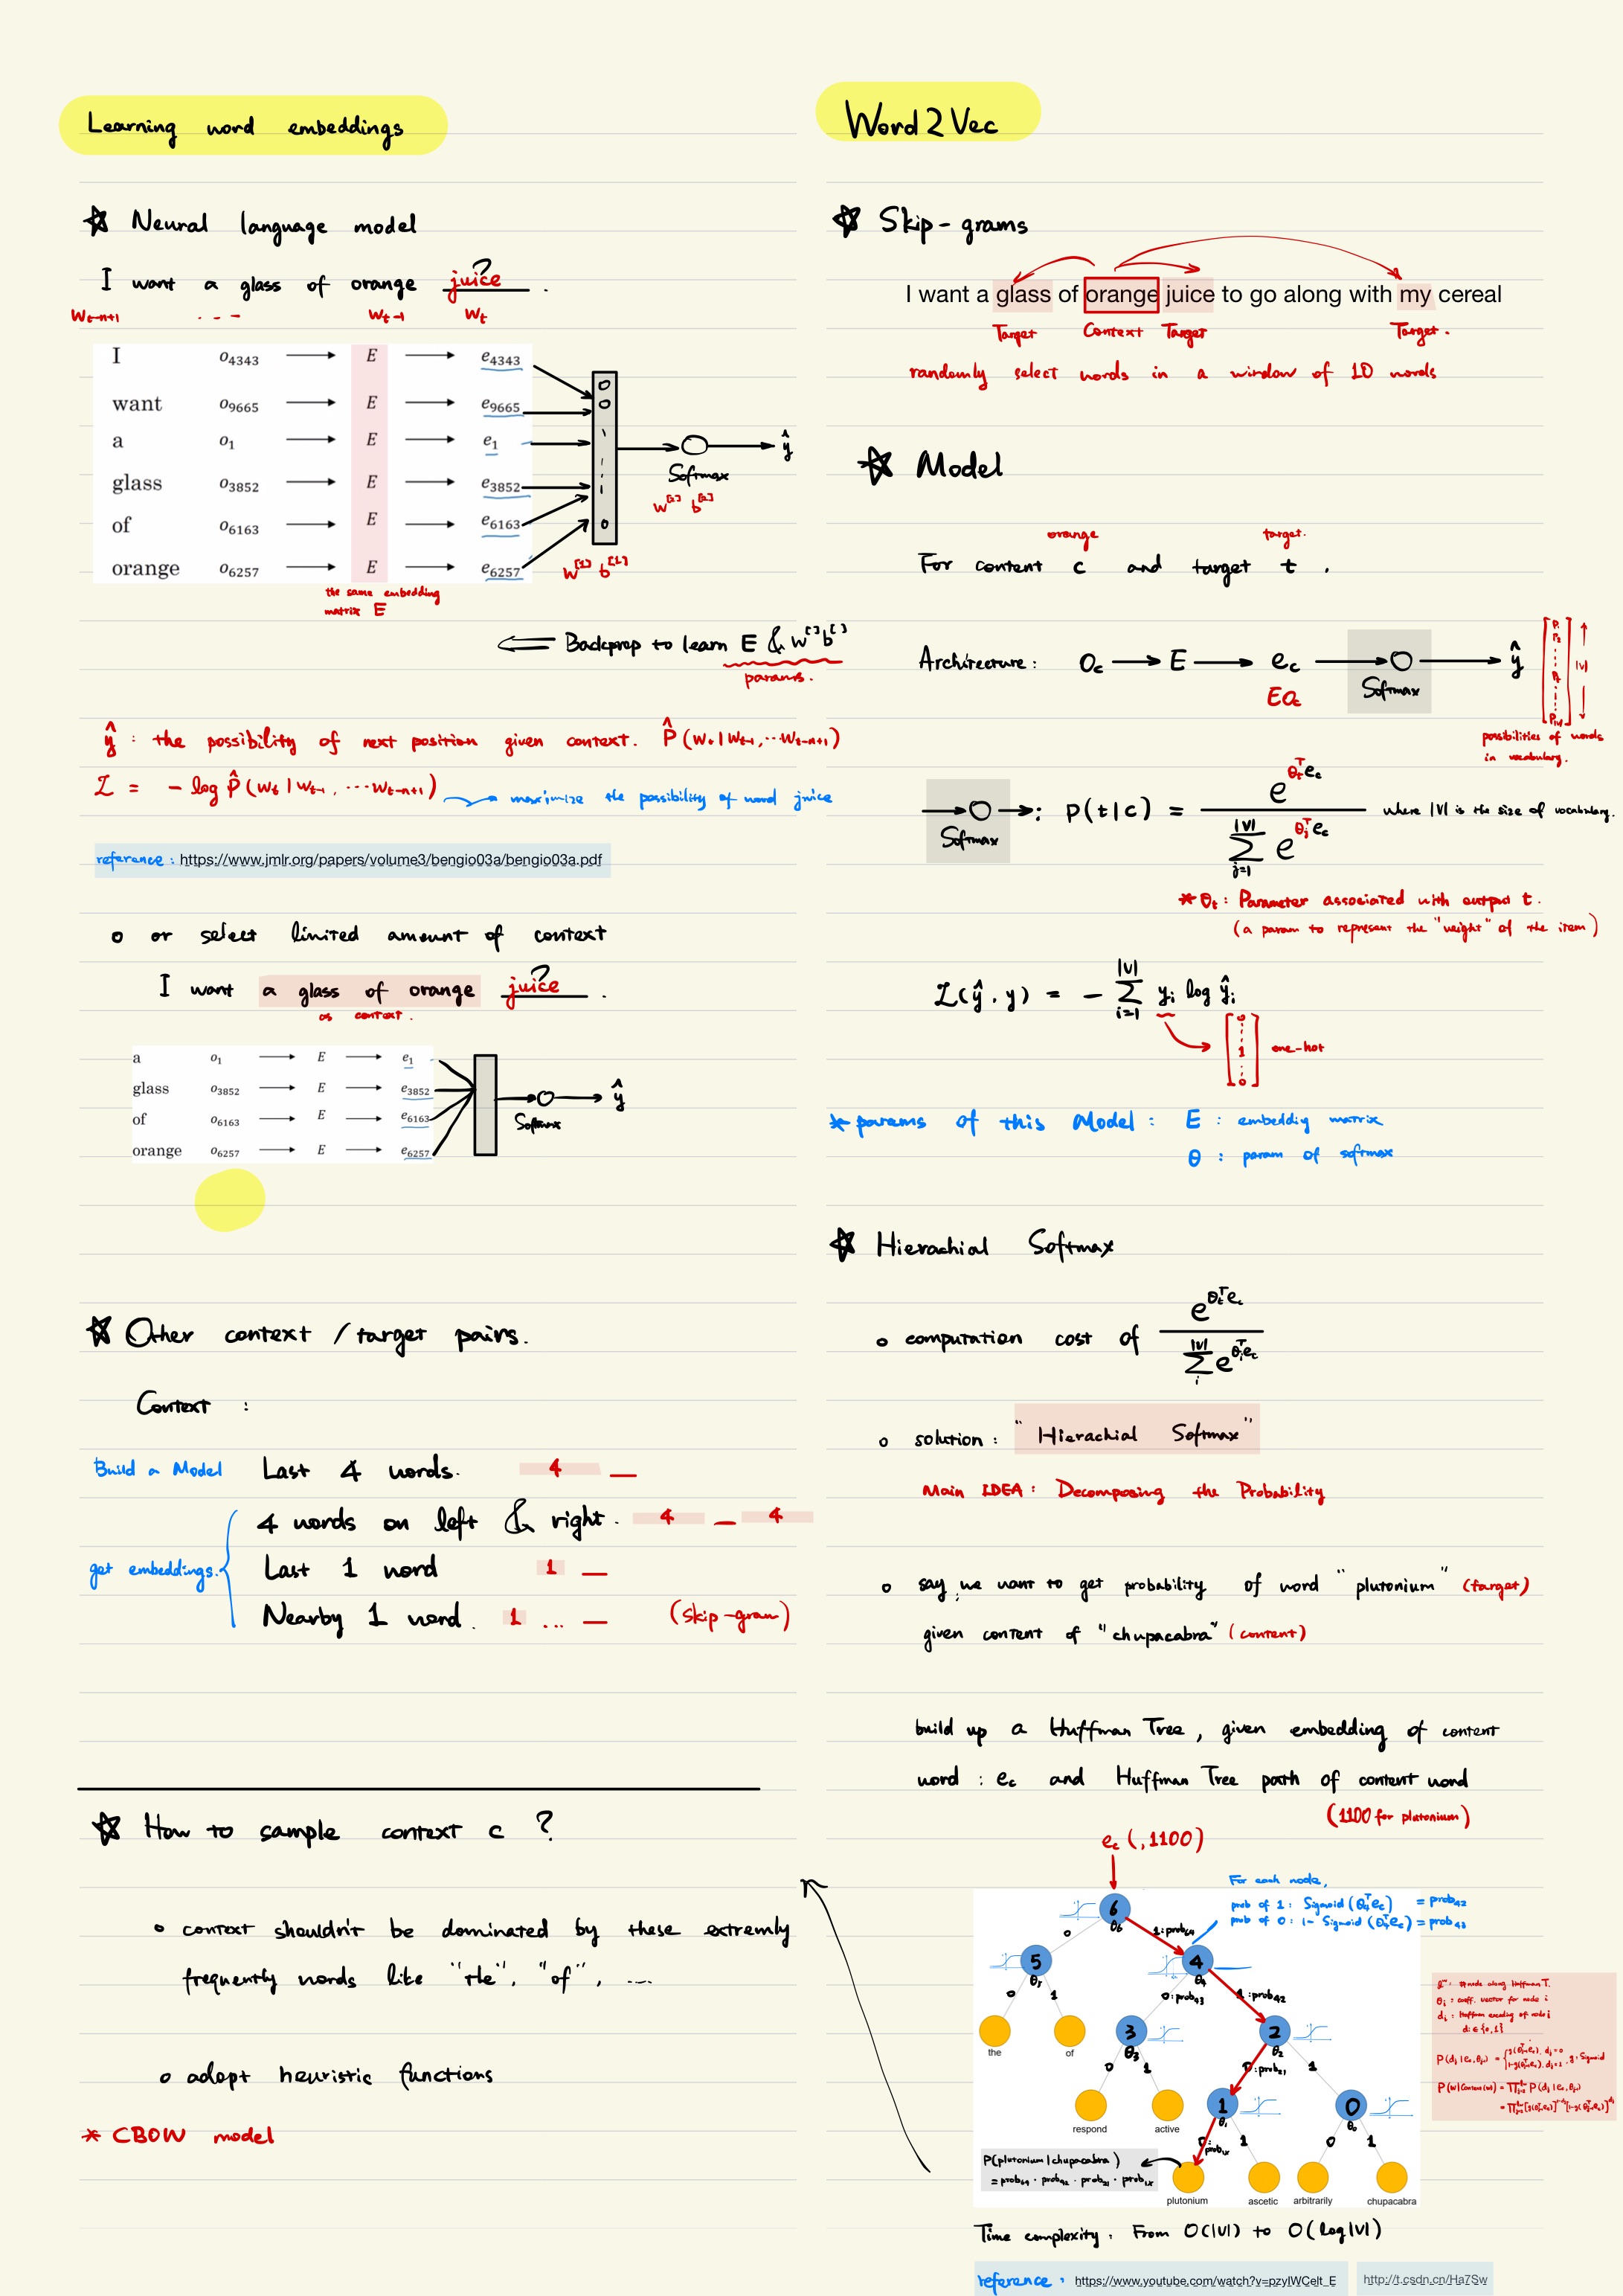 Learning word embeddings
☆ Neural language model
I want a glass of orange juice ? .
Wt-n+1 --- Wt-1 Wt
I o4343 → E → e4343
want o9665 → E → e9665
a o1 → E → e1
glass o3852 → E → e3852
of o6163 → E → e6163
orange o6257 → E → e6257
ŷ
Softmax
W[2] b[2]
W[1] b[1]
the same embedding
matrix E
⇐ Backprop to learn E & W[ ] b[ ]
params.
ŷ : the possibility of next position given context. P̂(Wt | Wt-1, ··· Wt-n+1)
L = - log P̂(Wt | Wt-1, ··· Wt-n+1) → maximize the possibility of word juice
reference: https://www.jmlr.org/papers/volume3/bengio03a/bengio03a.pdf
o or select limited amount of context
I want a glass of orange juice ? .
as context.
a o1 → E → e1
glass o3852 → E → e3852
of o6163 → E → e6163
orange o6257 → E → e6257
Softmax ŷ
☆ Other context / target pairs.
Context :
Build a Model Last 4 words. 4 —
4 words on left & right. 4 — 4
get embeddings. Last 1 word 1 —
Nearby 1 word. 1 ... — (skip-gram)
☆ How to sample context c ?
o context shouldn't be dominated by these extremly
frequently words like "the", "of", ...
o adopt heuristic functions
* CBOW model
Word2Vec
☆ Skip-grams
I want a glass of orange juice to go along with my cereal
Target Context Target Target.
randomly select words in a window of 10 words
☆ Model
orange target.
For content c and target t .
Architecture: Oc → E → ec → O → ŷ
Softmax
EOc
P1
P2
Pt
P|V|
|V|
possibilities of words
in vocabulary.
→ O →: P(t|c) = e^(θt^T ec) / Σ_{j=1}^{|V|} e^(θj^T ec) where |V| is the size of vocabulary.
Softmax
* θt: Parameter associated with output t.
(a param to represent the "weight" of the item)
L(ŷ, y) = - Σ_{i=1}^{|V|} yi log ŷi
0 1 0 one-hot
* params of this Model: E : embeddig matrix
θ : param of softmax
☆ Hierachial Softmax
o computation cost of e^(θt^T ec) / Σ_i^{|V|} e^(θi^T ec)
o solution: "Hierachial Softmax"
Main IDEA: Decomposing the Probability
o say, we want to get probability of word "plutonium" (target)
given content of "chupacabra" (content)
build up a Huffman Tree, given embedding of content
word : ec and Huffman Tree path of content word
(1100 for plutonium)
ec (,1100)
For each node,
prob of 1: Sigmoid(θ4^T ec) = prob42
prob of 0: 1- Sigmoid(θ4^T ec) = prob43
6 θ6
0 1:prob64
5 θ5 4 θ4
0 1 0:prob43 1:prob42
the of 3 θ3 2 θ2
0 1 0:prob21 1
respond active 1 θ1 0 θ0
0:prob1x 1 0 1
plutonium ascetic arbitrarily chupacabra
P(plutonium|chupacabra)
= prob64 · prob42 · prob21 · prob1x
: #node along Huffman T.
θi : coeff. vector for node i
di : Huffman encoding of node i
di ∈ {0,1}
Time complexity: From O(|V|) to O(log|V|)
reference: https://www.youtube.com/watch?v=pzyIWCelt_E http://t.csdn.cn/Ha7Sw